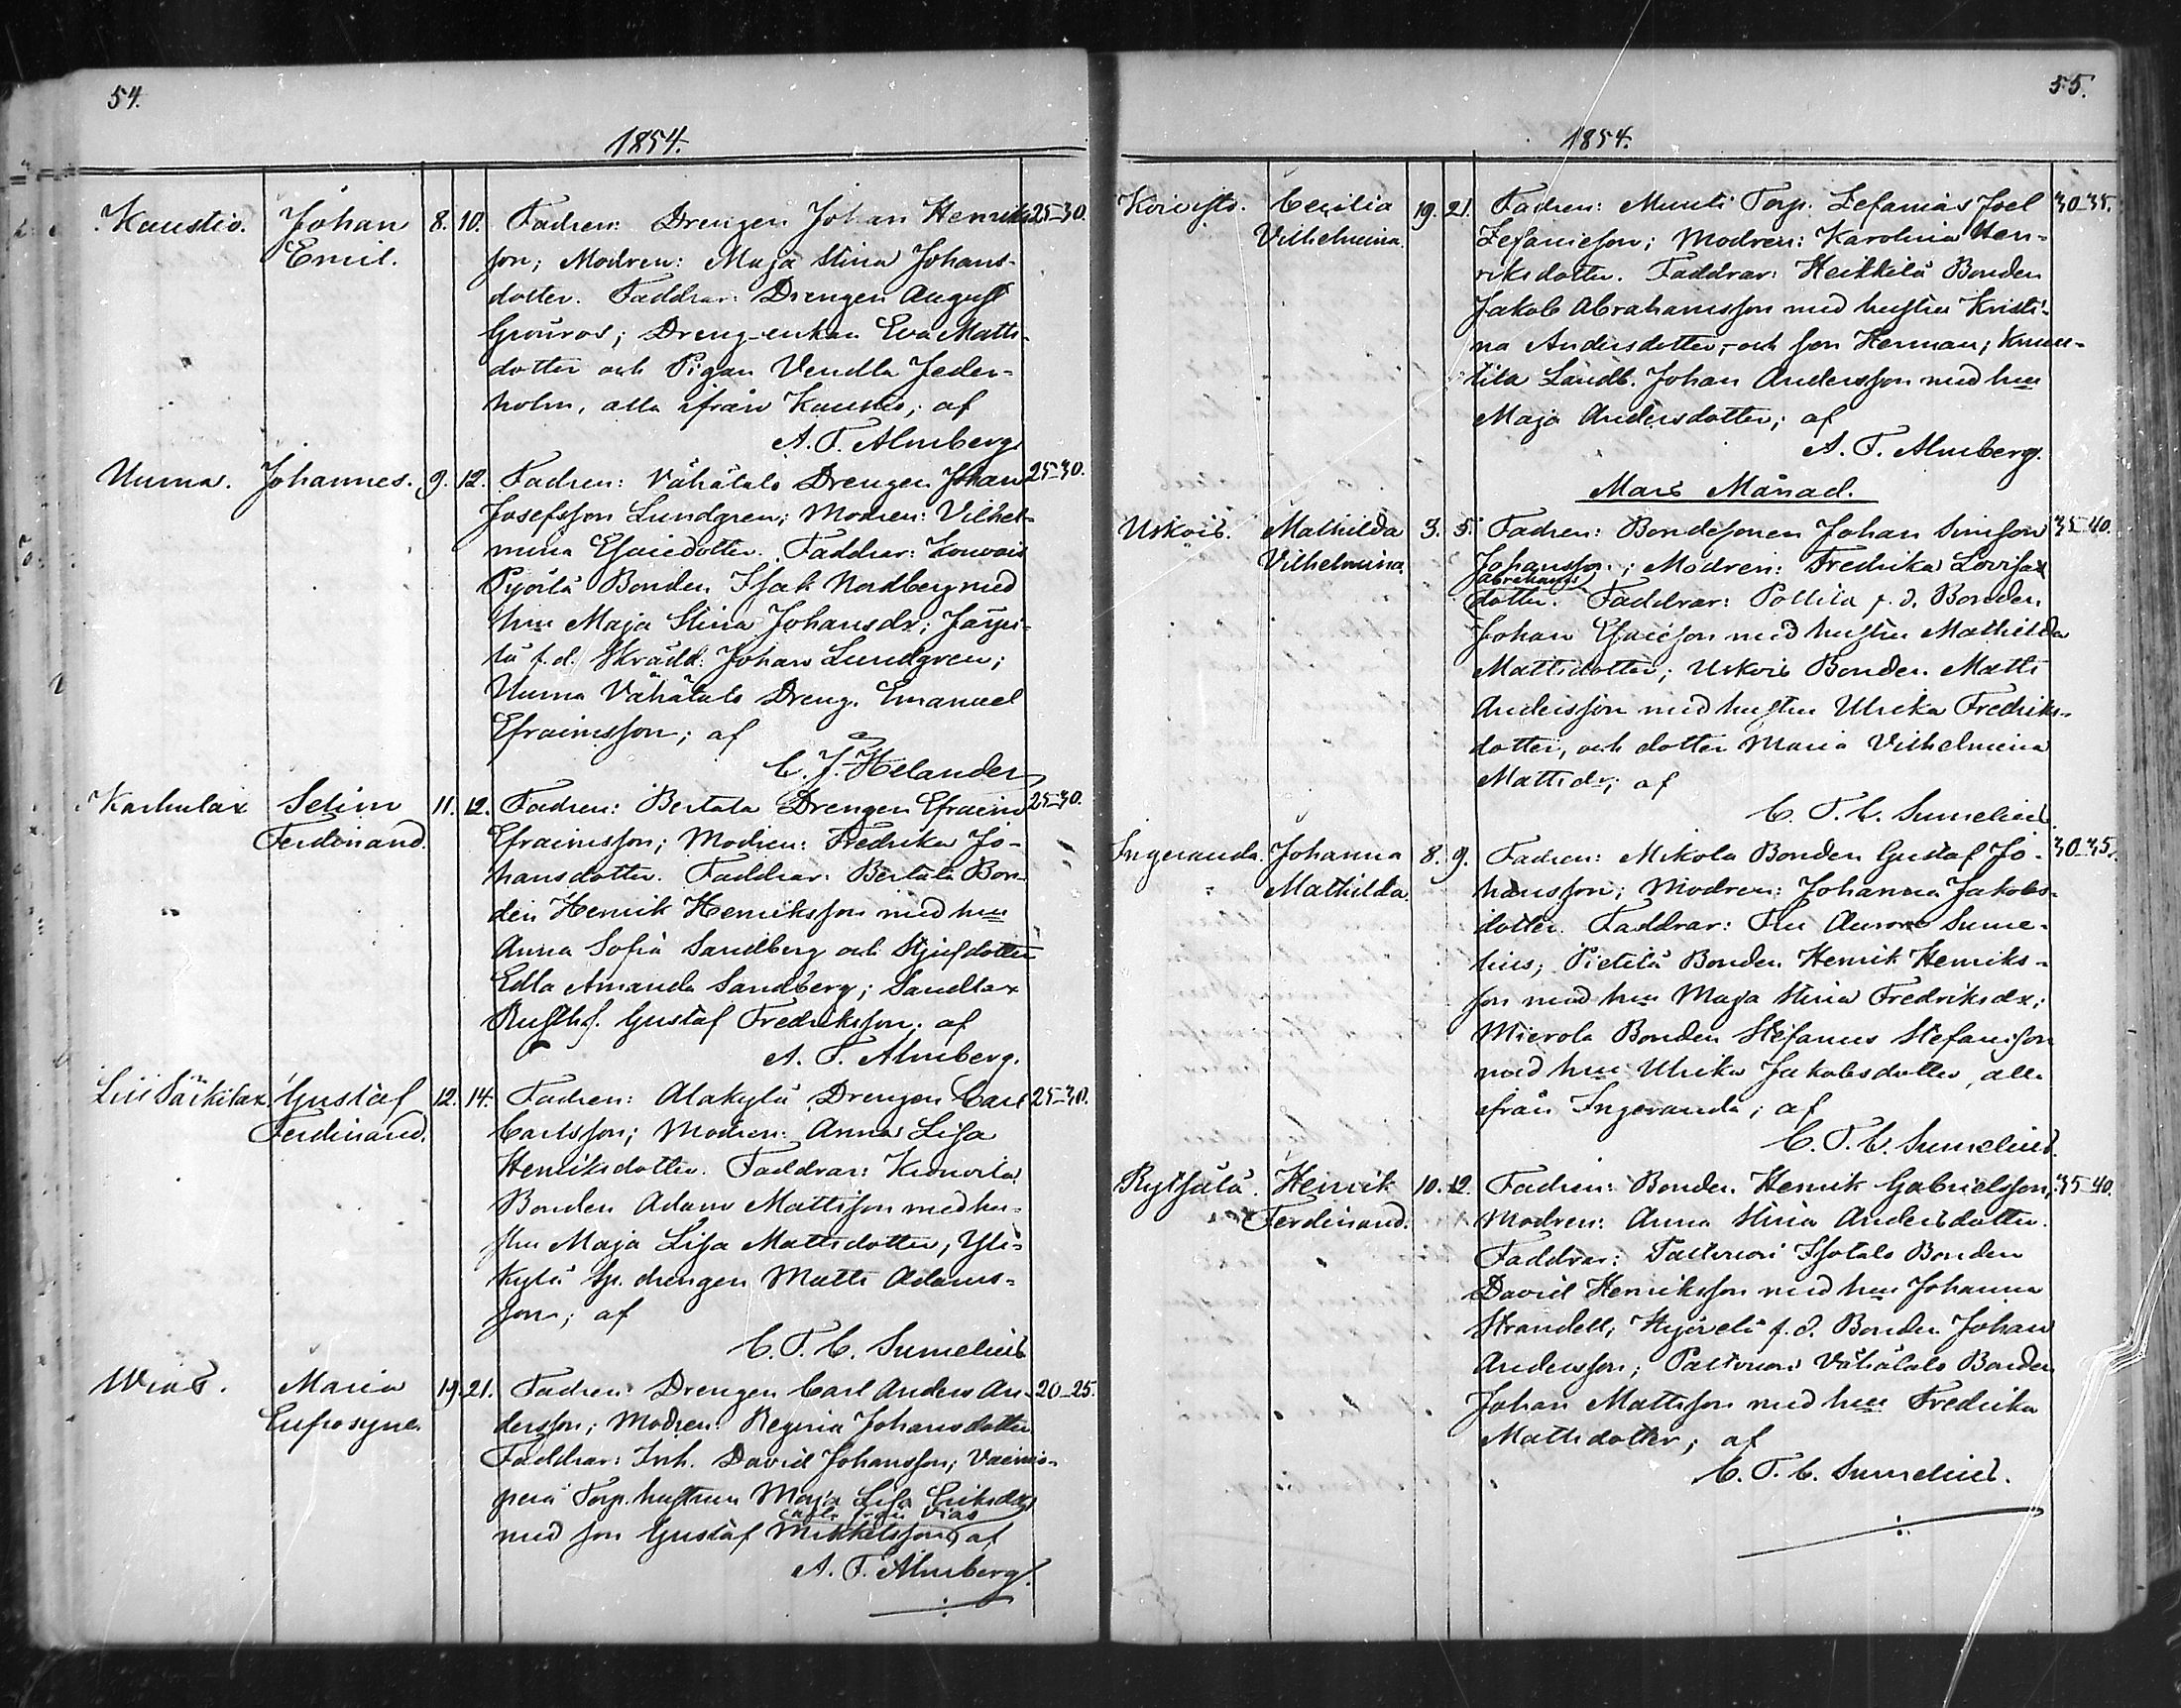 54.
1854.
Kaustio. Johan 8. 10. Fadren: Drengen Johan Henriks 25-30.
Emil. son; Modren: Maja Stina Johans-
dotter. Faddrar: Drengen August
Grönros; Dreng-enkan Eva Matts-
dotter och Pigan Vendla Jeder-
holm, alla ifrån Kaustio; af
A. F. Almberg.
Numa. Johannes. 9. 12. Fadren: Vähätalo Drengen Johan 25-30.
Josefsson Lundgren; Modren: Vilhel-
mina Esaiedotter. Faddrar:
Pyörlä Bonden Isak Nordberg med
hu Maja Stina Johansdr;
f.d. Skrädd. Johan Lundgren;
Numa Vähätalo Dreng. Emanuel
Efraimsson; af
C. J. Helander
Karhulax Selim 11. 12. Fadren: Bertala Drengen Efraim 25-30.
Ferdinand. Efraimsson; Modren: Fredrika Jo-
hansdotter. Faddrar: Bertala Bon-
den Henrik Henriksson med hu
Anna Sofia Sandberg och Stjufdotter
Edla Amanda Sandberg; Sandlax
Rusth. Gustaf Fredriksson; af
A. F. Almberg.
Särkilax. Gustaf 12. 14. Fadren: Alakylä Drengen Carl 25-30.
Ferdinand. Carlsson; Modren: Anna Lisa
Henriksdotter. Faddrar:
Bonden Adam Mattsson med hu-
stru Maja Lisa Mattsdotter; Yli-
kylä Sp. drengen Matts Adams-
son; af
C. T. C. Sumelius
Wias. Maria 19. 21. Fadren: Drengen Carl Anders An- 20-25.
Eufrosyne. dersson; Modren: Regina Johansdotter
Faddrar: Inh. David Johansson; Vainio-
perä Torp. hustrun Maja Lisa Eriksdr,
alla från Vias
med son Gustaf Mikkelsson, af
A. F. Almberg.
55.
1854.
Koivisto. Cecilia 19. 21. Fadren: Munti Torp. Zefanias Joel 30-35.
Vilhelmina. Zefanieson; Modren: Karolina Hen-
riksdotter. Faddrar: Heikkilä Bonden
Jakob Abrahamsson med hustru Kristi-
na Andersdotter, och son Herman;
Landb. Johan Andersson med hu
Maja Andersdotter; af
A. F. Almberg.
Mars Månad.
Uskois. Mathilda 3. 5. Fadren: Bondesonen Johan Simson 35-40.
Vilhelmina. Johansson; Modren: Fredrika Lovisa
Abrahams
dotter. Faddrar: Pollila f. d. Bonden
Johan Esaieson med hustru Mathilda
Mattsdotter; Uskois Bonden Matts
Andersson med hustru Ulrika Fredriks-
dotter, och dotter Maria Vilhelmina
Mattsdr; af
C. T. C. Sumelius.
Ingeranda. Johanna 8. 9. Fadren: Mikola Bonden Gustaf Jo- 30-35.
Mathilda. hansson; Modren: Johanna Jakobs-
dotter. Faddrar: Fru Aurora Sume-
lius; Pietilä Bonden Henrik Henriks-
son med hu Maja Stina Fredriksdr;
Mierola Bonden Stefanus Stefansson
med hu Ulrika Jakobsdotter, alla
från Ingeranda; af
C. T. C. Sumelius.
Rytsälä. Henrik 10. 12. Fadren: Bonden Henrik Gabrielsson, 35-40.
Ferdinand. Modren: Anna Stina Andersdotter.
Faddrar: Isotalo Bonden
David Henriksson med hu Johanna
Strandell; f. d. Bonden Johan
Andersson; Vähätalo Bonden
Johan Mattsson med hu Fredrika
Mattsdotter; af
C. T. C. Sumelius.